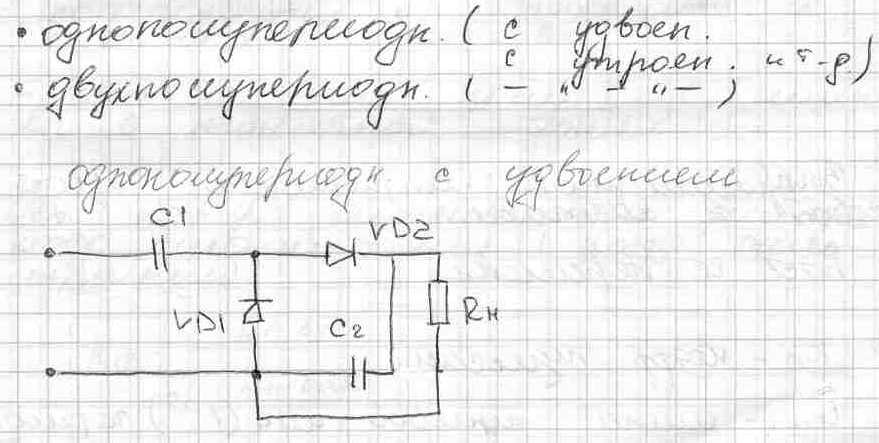 • однополупериодн. ( с удвоен.
с утроен. и т-д.)
• двухполупериодн. ( — " — " — )
однополупериодн. с удвоением
C1
VD2
VD1
C2
Rн